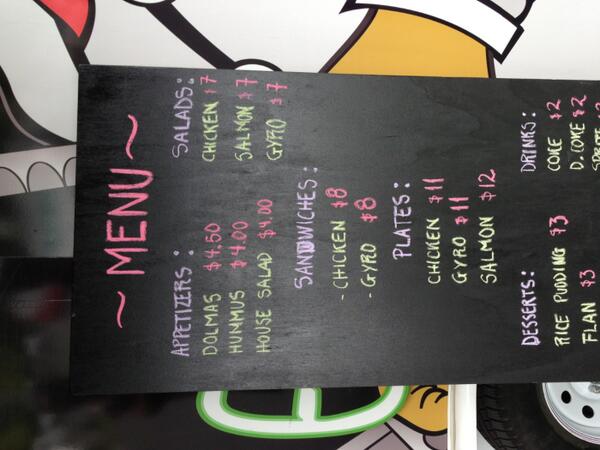 ~ MENU ~
APPETIZERS:
DOLMAS $4.50
HUMMUS $4.00
HOUSE SALAD $4.00
SALADS:
CHICKEN $7
SALMON $7
GYRO $7
SANDWICHES:
- CHICKEN $8
- GYRO $8
PLATES:
CHICKEN $11
GYRO $11
SALMON $12
DESSERTS:
RICE PUDDING $3
FLAN $3
DRINKS:
COKE $2
D. COKE $2